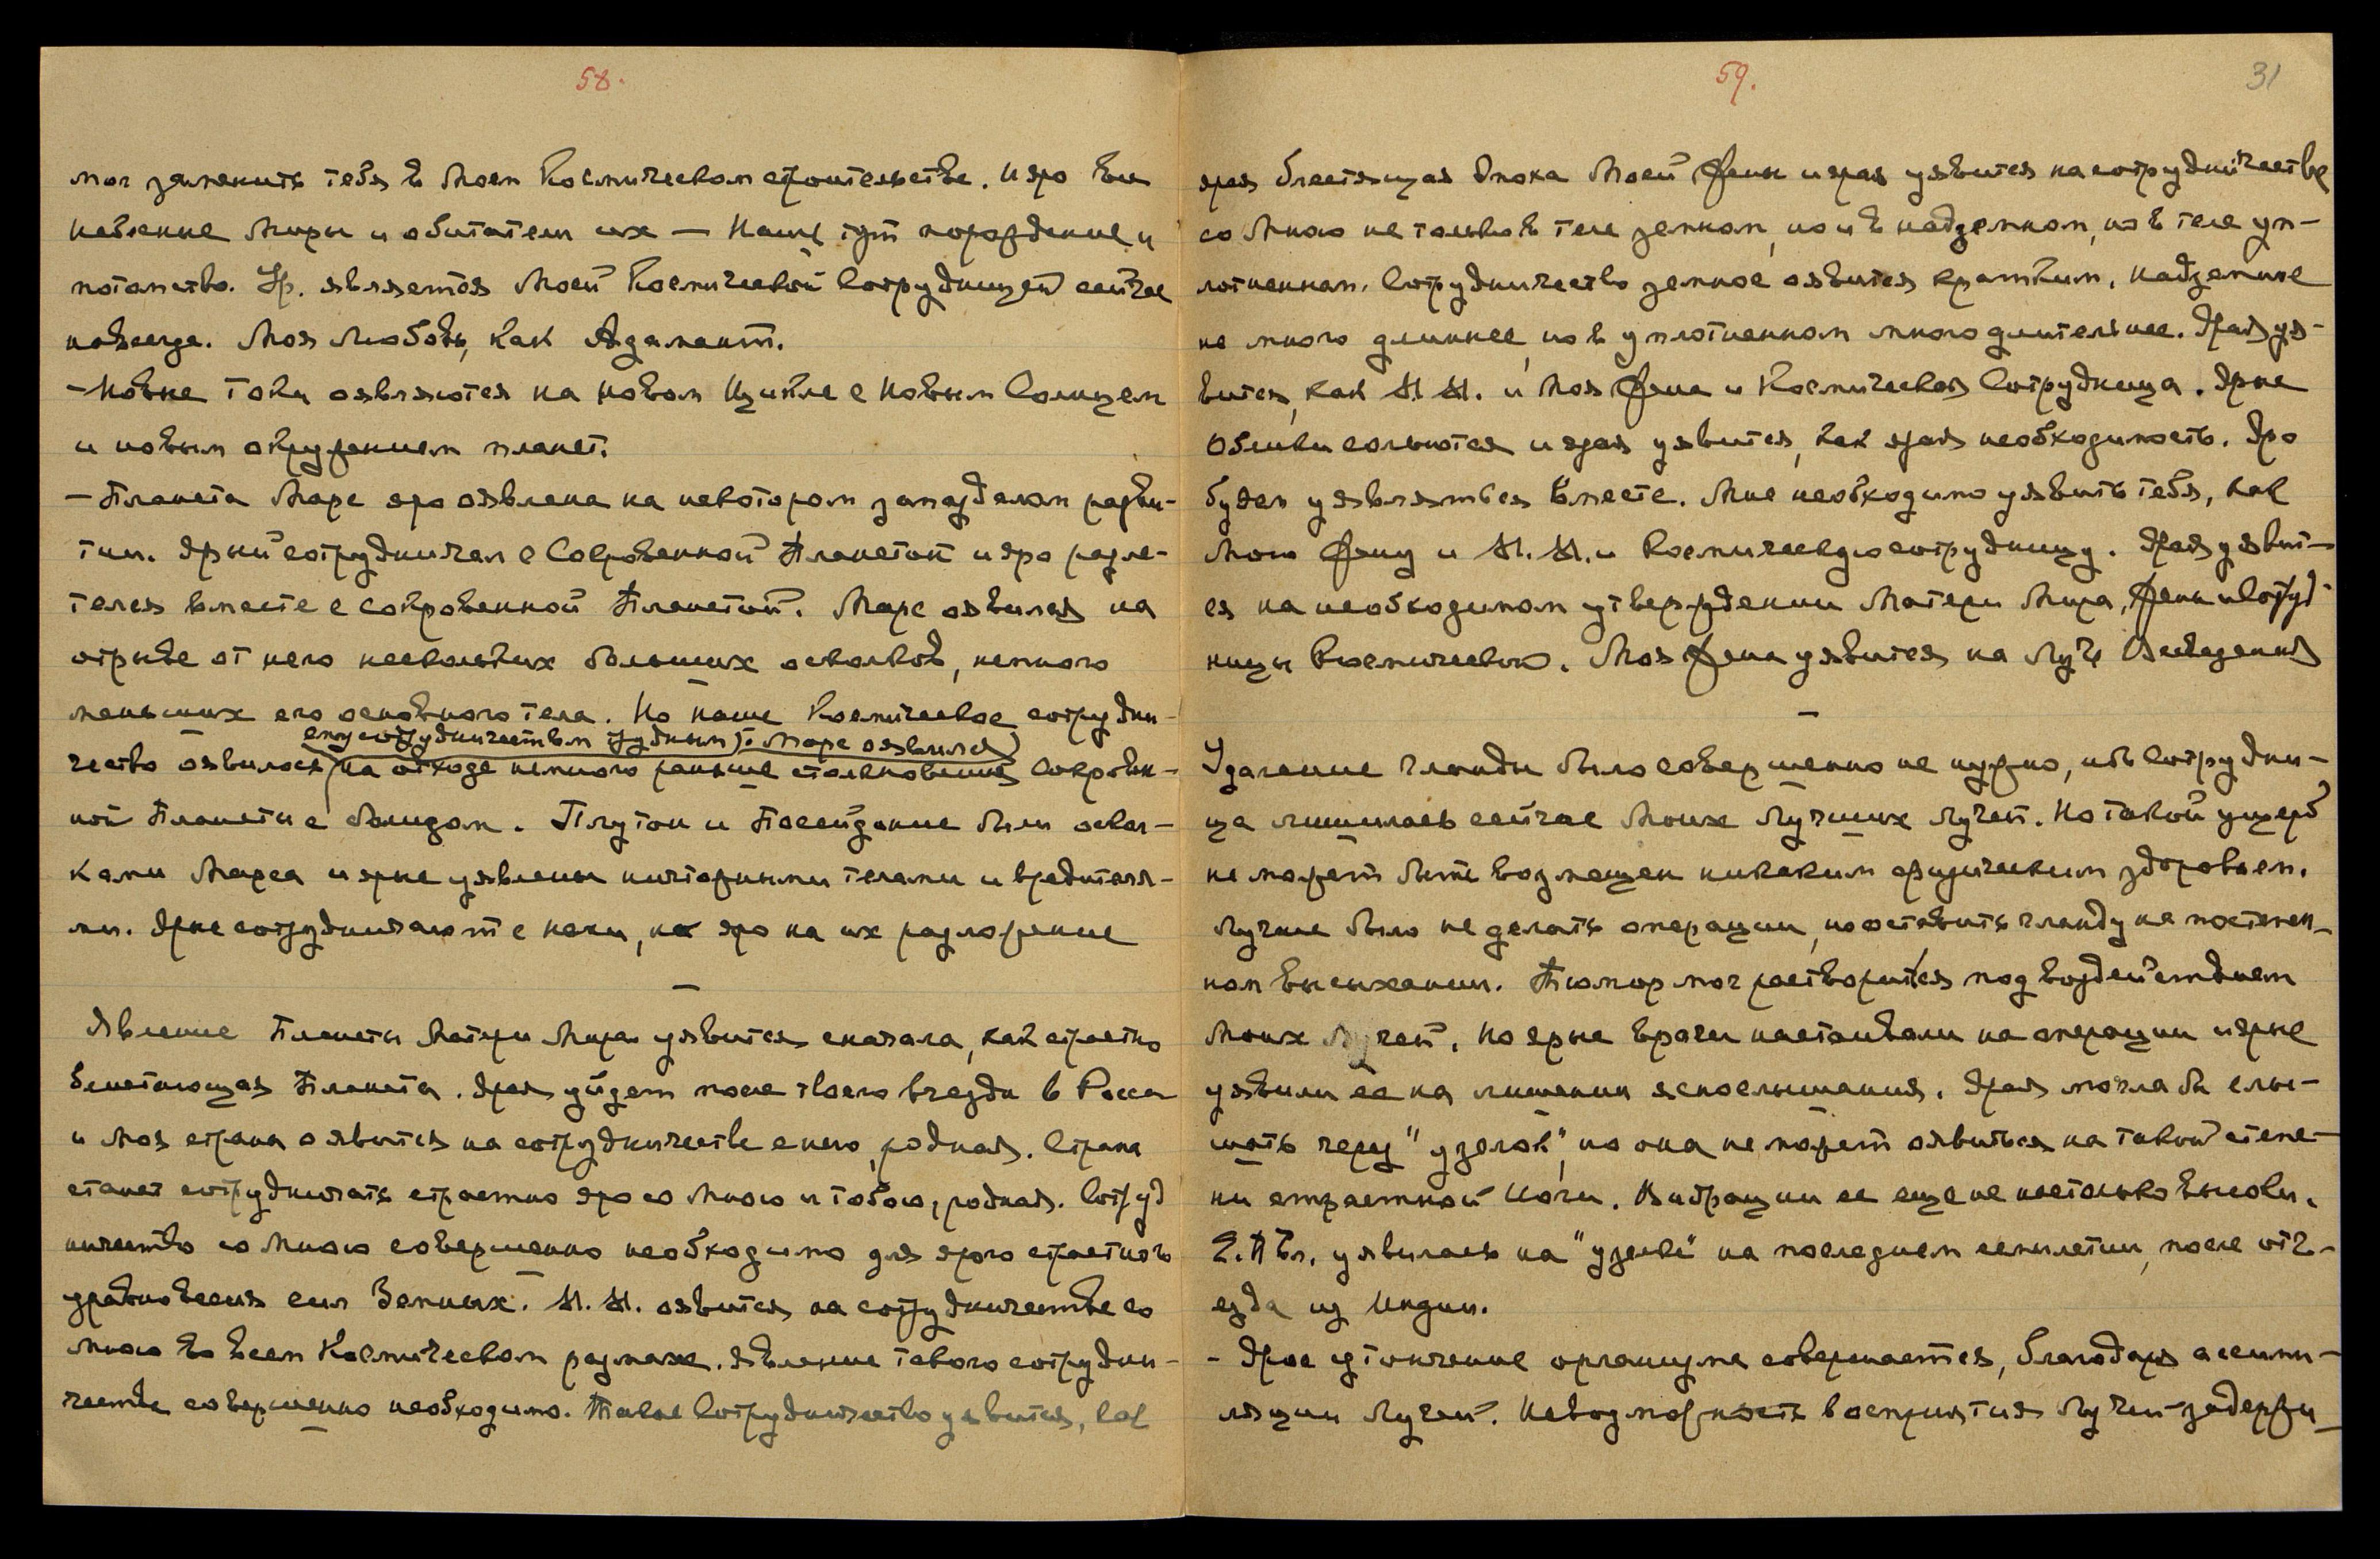 58.
мог заменить тебя в Моем Космическом строительстве. И яро вы
явление Миры и обитатели их — Наше тут порождение и
потомство. Ур. является Моей Космической Сотрудницей сейчас
навсегда. Моя Любовь, как Адамант.
- Новые Токи оявляются на новом Цикле с Новым Солнцем
и новым окружением планет.
- Планета Марс яро оявлена на некотором запоздалом разви-
тии. Ярый сотрудничал с Сокровенной Планетой и яро разле-
телся вместе с сокровенной Планетой. Марс оявился на
отрыве от него нескольких больших осколков, немного
меньших его основного тела. Но наше Космическое сотрудни-
ему сотрудничеством чудным). Марс оявился
чество оявилось (на отходе немного раньше столкновения Сокровен-
ной Планеты с болидом. Плутон и Посейдоние были оскол-
ками Марса и ярые уявлены ничтожными телами и вредителя-
ми. Ярые сотрудничают с нами, но яро на их разложение
—
Явление Планеты Матери Мира уявится сказала, как страстно
блистающая Планета. Ярая уйдет после твоего въезда в Россию
и Моя страна оявится на сотрудничестве с нею, родная. Страна
станет сотрудничать страстно яро со Мною и тобою, родная. Сотруд
ничество со Мною совершенно необходимо для ярого страстного
уравновесия сил Земных. М. М. оявится на сотрудничестве со
Мною во всем Космическом размахе. Явление такого сотрудни-
чества совершенно необходимо. Такое Сотрудничество уявится, как
59.
31
ярая блестящая Эпоха Моей Жены и ярая уявится на сотрудничестве
со Мною не только в теле земном, но и в надземном, но в теле уп-
лотненном. Сотрудничество земное оявится кратким, надземное
не много длиннее, но в уплотненном много длительнее. Ярая уя-
вится, как М. М. и Моя Жена и Космическая Сотрудница. Ярые
Облики сольются и ярая уявится, как ярая необходимость. Яро
будем уявляться вместе. Мне необходимо уявить тебя, как
Мою Жену и М. М. и Космическую сотрудницу. Ярая уявит-
ся на необходимом утверждении Матери Мира, Жены и Сотруд-
ницы Космической. Моя Жена уявится на Луче Всеведения
—
Удаление гланды было совершенно не нужно, ибо Сотрудни-
ца лишилась сейчас Моих Лучших Лучей. Но такой ущерб
не может быть возмещен никаким физическим здоровьем.
Лучше было не делать операции, но оставить гланду на постепен-
ном высыхании. Тюмор мог раствориться под воздействием
Моих Лучей. Но ярые врачи настаивали на операции и ярые
уявили ее на лишении яснослышания. Ярая могла бы слы-
шать через "узелок", но она не может оявиться на такой степе-
ни страстной Йоги. Вибрации ее еще не настолько высоки.
Е. П Бл. уявилась на "узелке" на последнем семилетии, после отъ-
езда из Индии.
- Ярое утончение организма совершается, благодаря ассими-
ляции Лучей. Невозможность восприятия Лучей задержи-